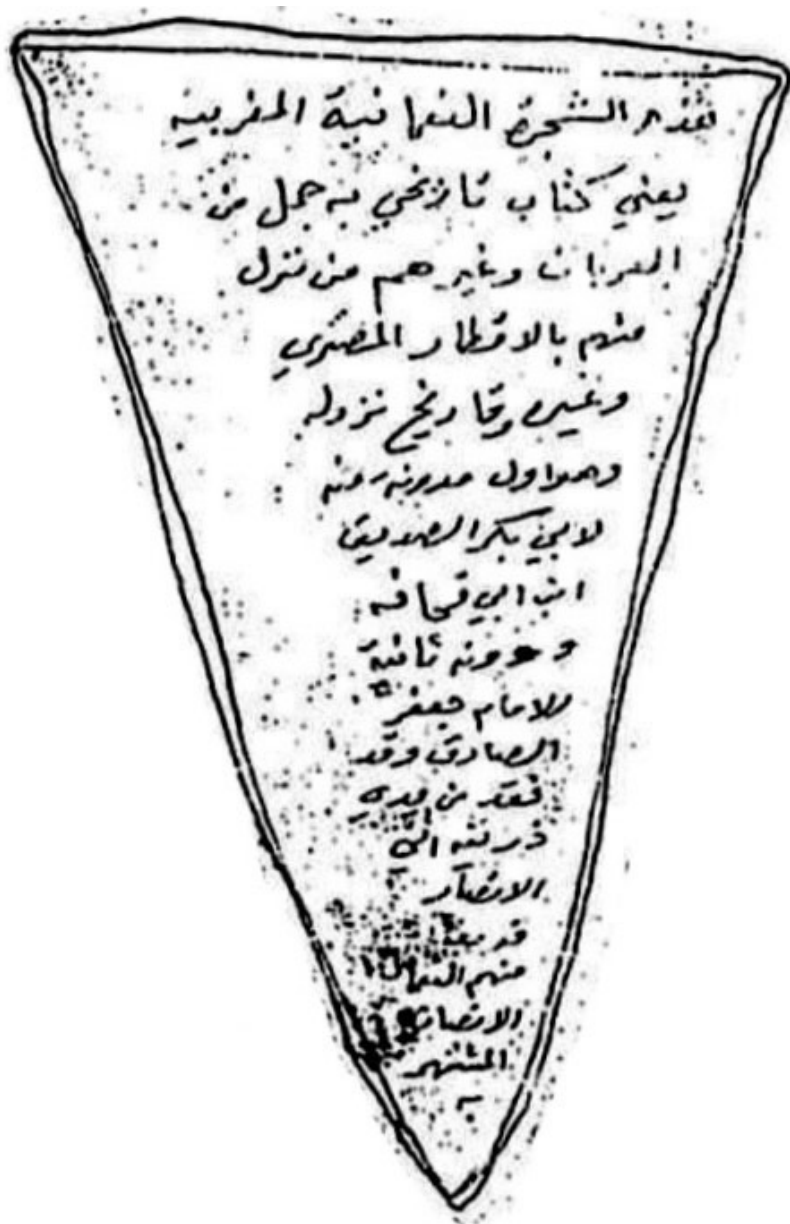 هذه الشجرة النعمانية المغربيه
يعني كتاب تاريخي به جمل من
العربان وغيرهم من نزل
منهم بالاقطار المصري
وغيره وتاريخ نزوله
وهو اول مدونه دونه
لابي بكر الصديق
ابن ابي قحافه
و دونه ثانية
للامام جعفر
الصادق وقد
فقد من يدي
ذريته الي
الانصار
قديما
منهم النعمان
الانصاري
المشتهر
به